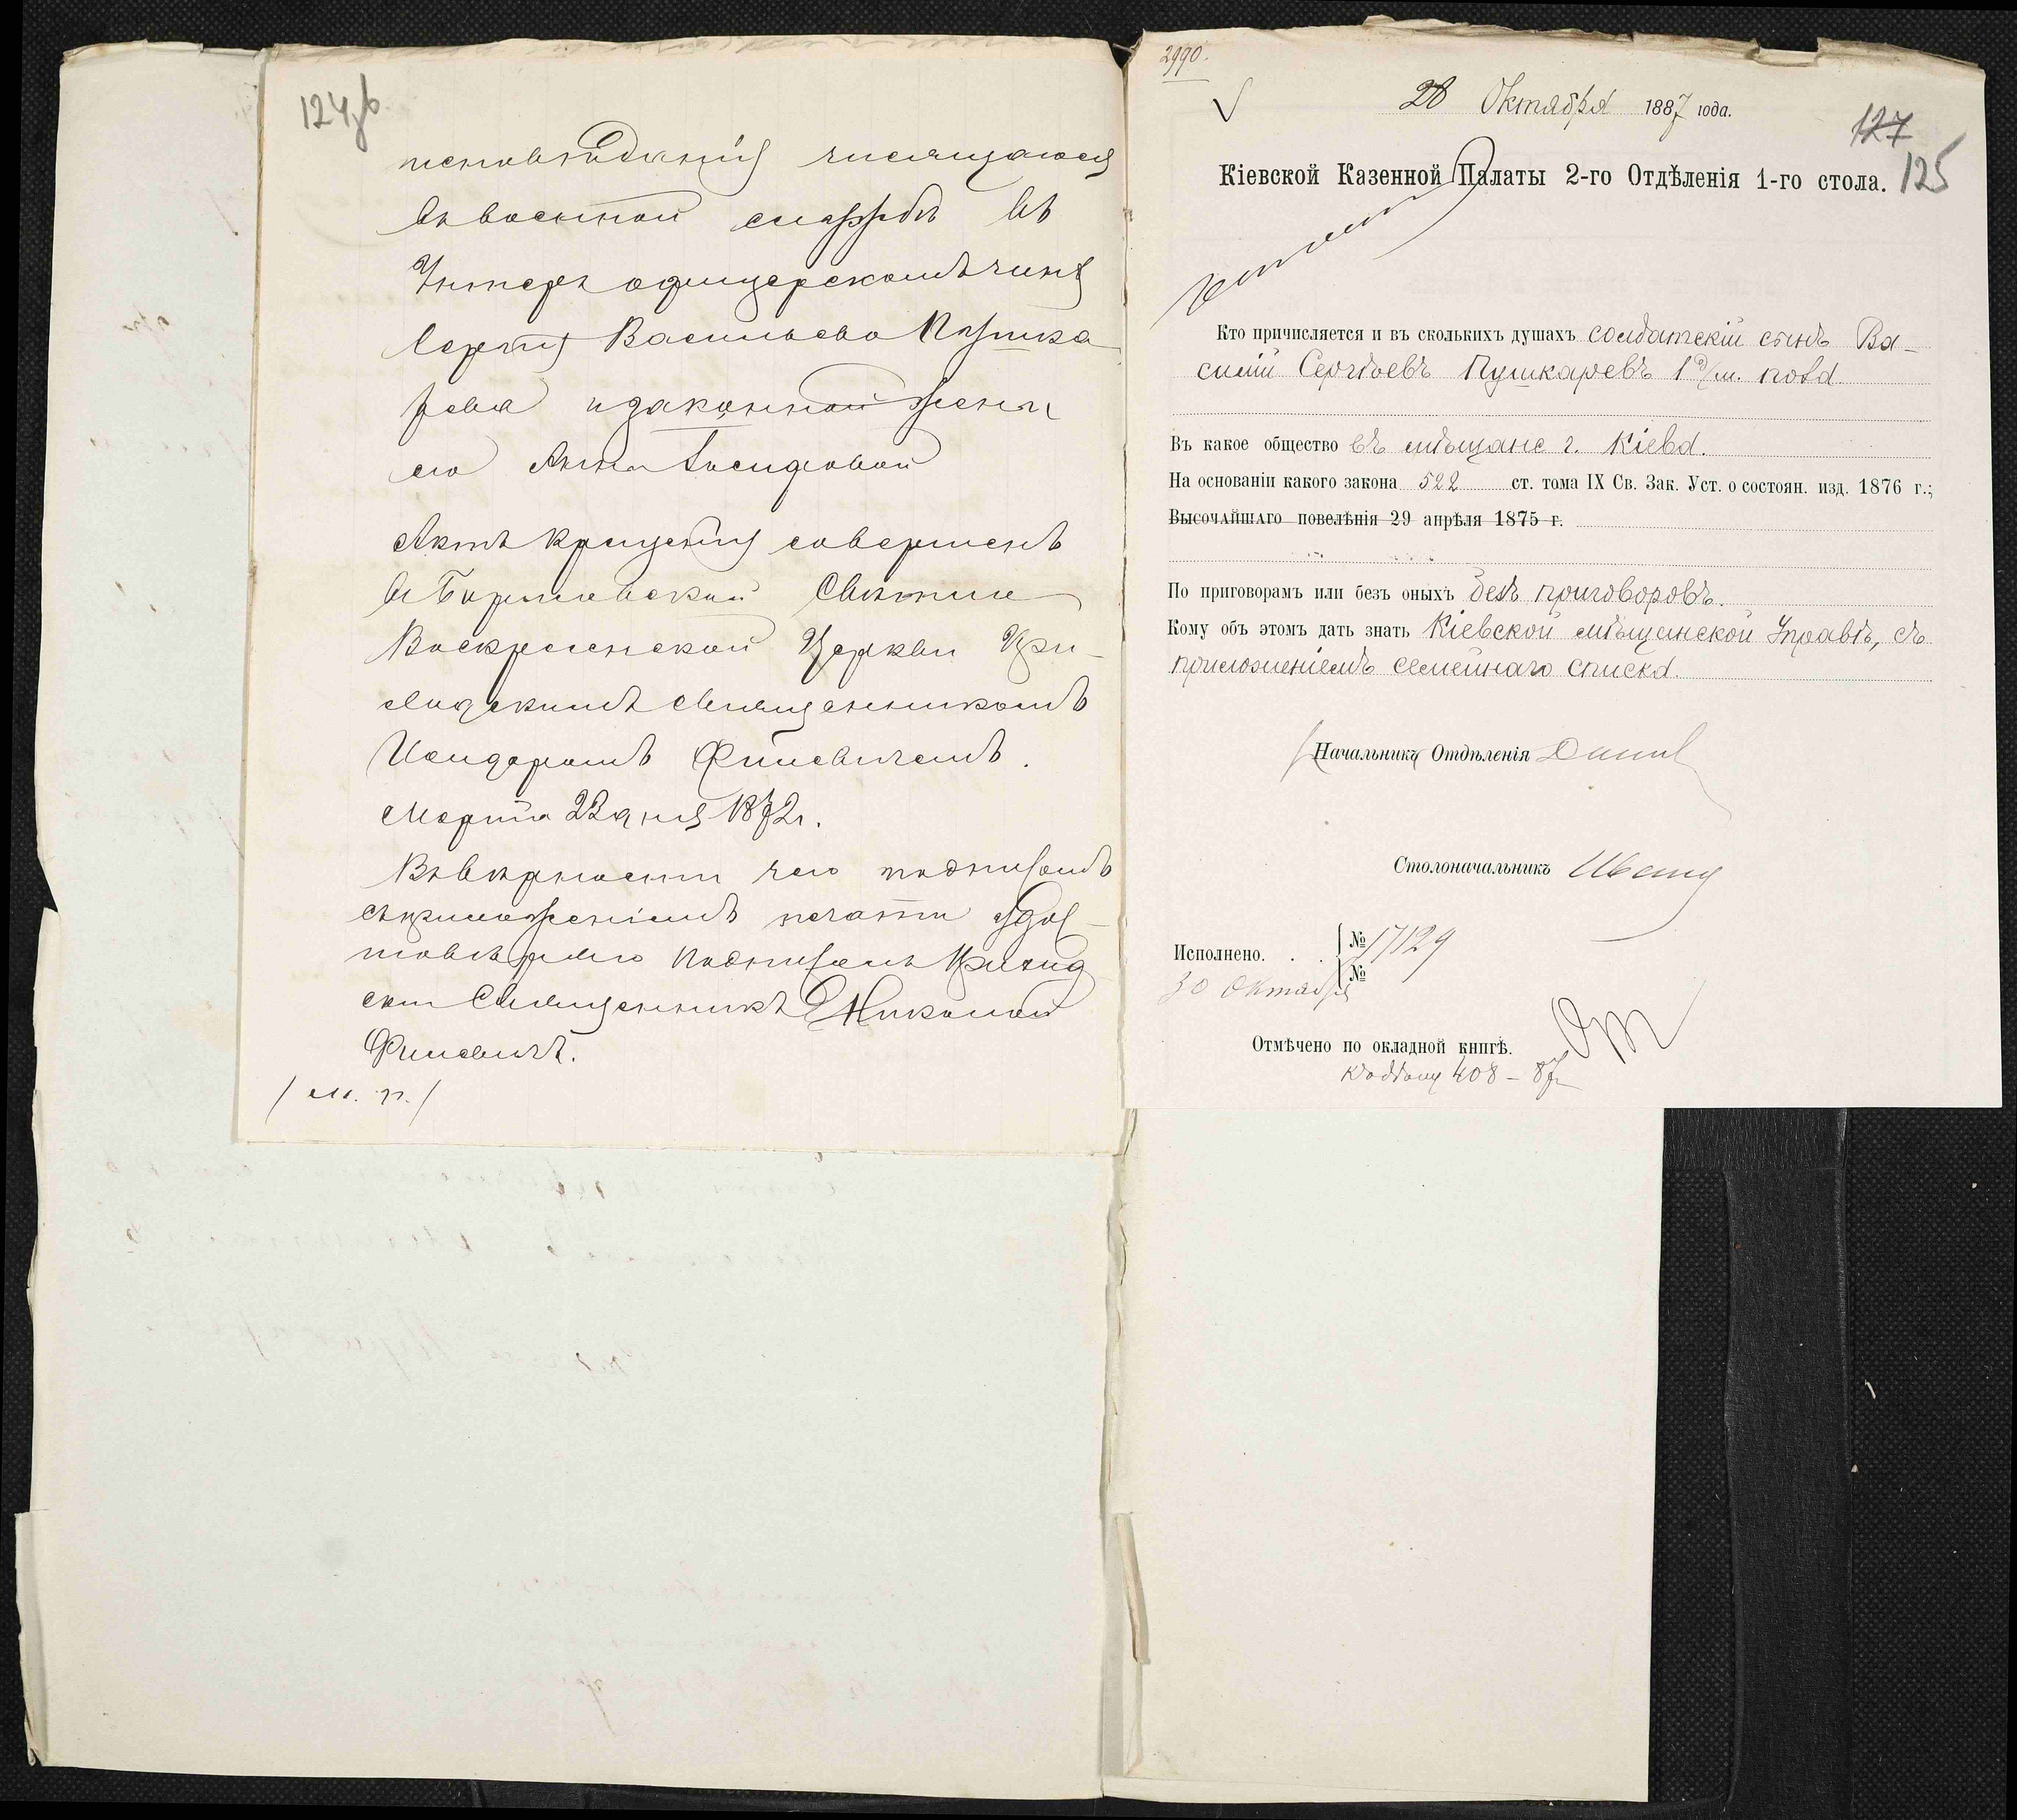 124об
исповѣданія числящагося
въ военной службѣ въ
Унтеръ офицерскомъ чинѣ
Сергія Васильева Пушка
рева и законной жены
его Анны Іосифовой
Актъ крещенія совершенъ
въ Свято
Воскресенской Церкви При-
ходскимъ священникомъ
Исидоромъ Филевичемъ.
Марта 22 дня 1872 г.
Въ вѣрности чего подписомъ
съ приложеніемъ печати удос-
товѣряю Подписалъ Приход
скій Священникъ Николай
Филевичъ.
/ М. п. /
2990.
28 Октября 1887 года.
127
125
Кіевской Казенной Палаты 2-го Отдѣленія 1-го стола.
Кто причисляется и въ сколькихъ душахъ солдатскій сынъ Ва-
силій Сергѣевъ Пушкаревъ 1 д. м. пола
Въ какое общество въ мѣщане г. Кіева.
На основаніи какого закона 522 ст. тома IX Св. Зак. Уст. о состоян. изд. 1876 г.;
Высочайшаго повелѣнія 29 апрѣля 1875 г.
По приговорамъ или безъ оныхъ безъ приговоровъ.
Кому объ этомъ дать знать Кіевской мѣщанской Управѣ, съ
приложеніемъ семейнаго списка.
Начальникъ Отдѣленія
Столоначальникъ
Исполнено. . . № 17129
№
30 Октября
Отмѣчено по окладной книгѣ.
408 - 87